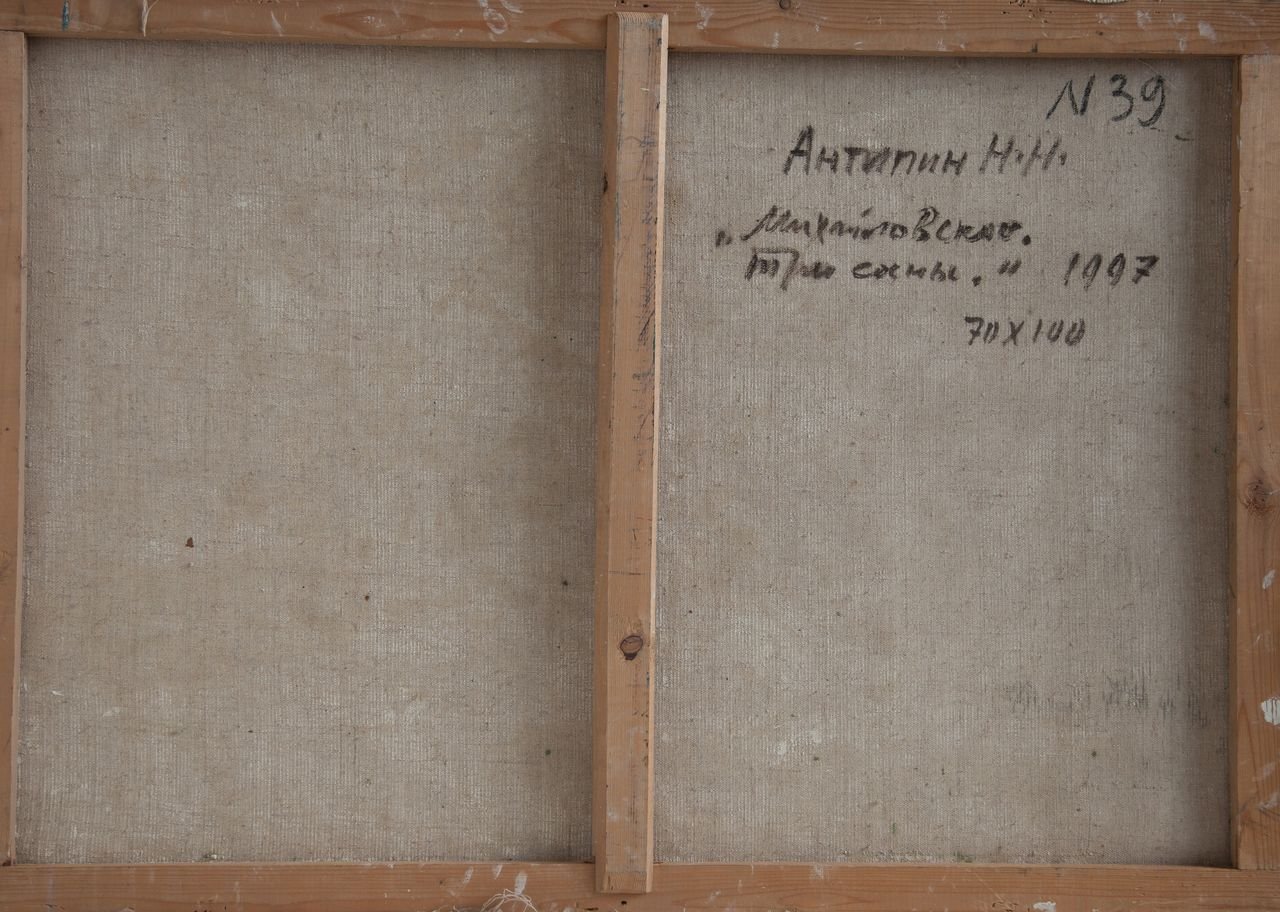 N 39
Антипин Н.Н.
„Михайловское.
Три сосны.“ 1997
70х100